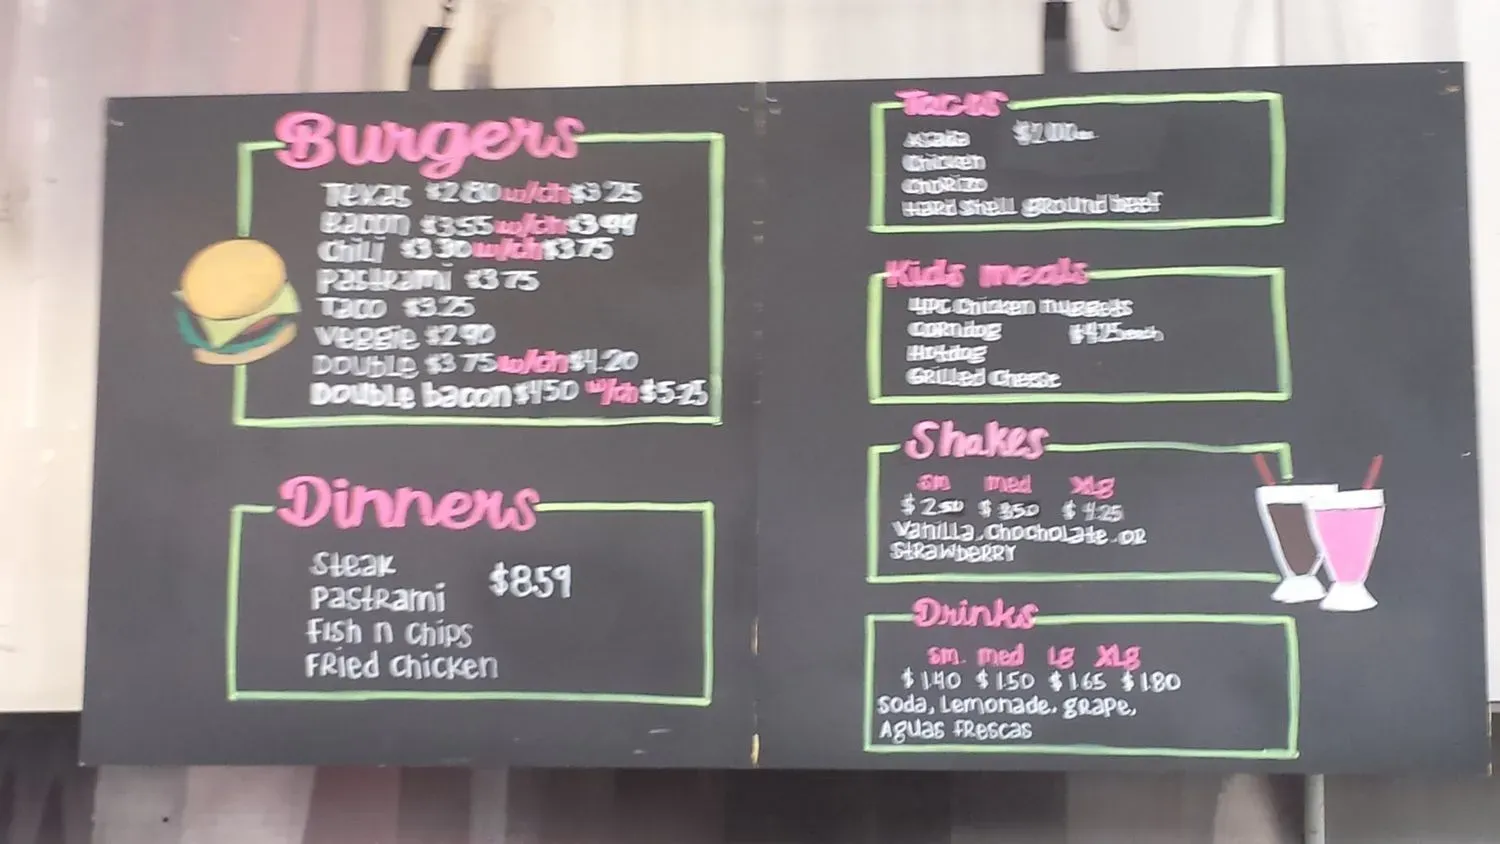 Burgers
Texas $2.80 w/ch $3.25
Bacon $3.55 w/ch $3.99
Chili $3.30 w/ch $3.75
Pastrami $3.75
Taco $3.25
Veggie $2.90
Double $3.75 w/ch $4.20
Double bacon $4.50 w/ch $5.25
Dinners
Steak
Pastrami $8.59
Fish n chips
Fried chicken
Tacos
Asada $2.00
Chicken
Chorizo
Hard shell ground beef
Kids meals
4pc Chicken nuggets
Corndog $4.25 each
Hotdog
Grilled Cheese
Shakes
sm med XLg
$2.50 $3.50 $4.25
Vanilla, Chocholate or
Strawberry
Drinks
sm. med Lg XLg
$1.40 $1.50 $1.65 $1.80
Soda, Lemonade, grape,
Aguas Frescas